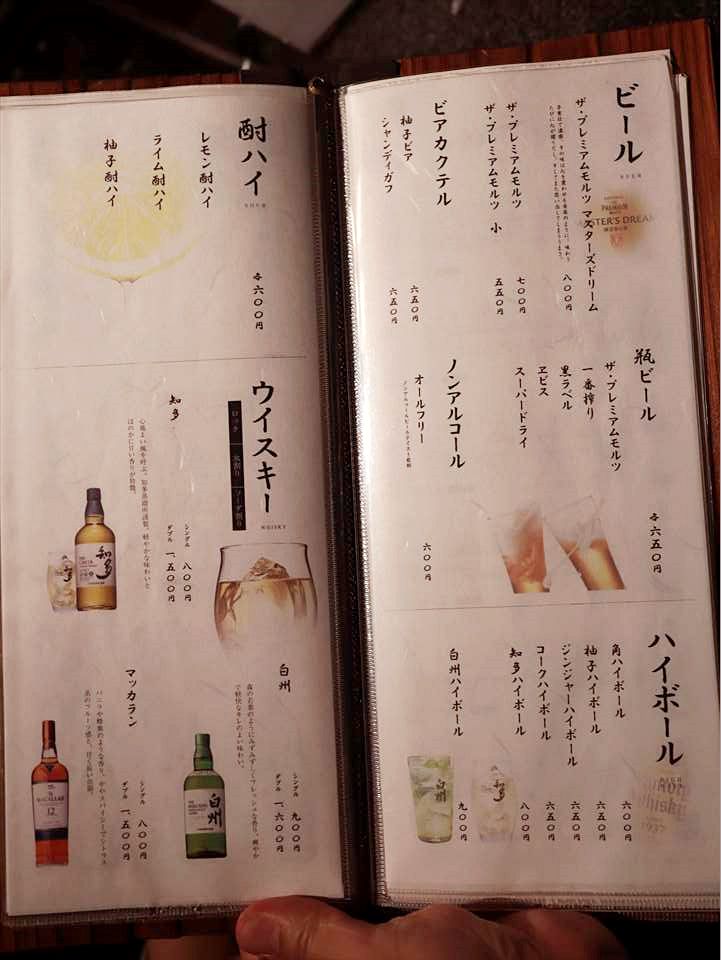 ビール
BEER
ザ・プレミアムモルツ マスターズドリーム
八〇〇円
ザ・プレミアムモルツ
七〇〇円
ザ・プレミアムモルツ 小
五五〇円
ビアカクテル
柚子ビア
六五〇円
シャンディガフ
六五〇円
瓶ビール
ザ・プレミアムモルツ
一番搾り
黒ラベル
ヱビス
スーパードライ
各六五〇円
ノンアルコール
オールフリー
ノンアルコールビールテイスト飲料
六〇〇円
ハイボール
角ハイボール
六〇〇円
柚子ハイボール
六五〇円
ジンジャーハイボール
六五〇円
コークハイボール
六五〇円
知多ハイボール
八〇〇円
白州ハイボール
九〇〇円
酎ハイ
レモン酎ハイ
ライム酎ハイ
柚子酎ハイ
各六〇〇円
ウイスキー
WHISKY
ロック
水割り
ソーダ割り
知多
心地よい風を呼ぶ、知多蒸溜所謹製。軽やかな味わいと
ほのかに甘い香りが特徴。
シングル 八〇〇円
ダブル 一、五〇〇円
知多
白州
森の若葉のようにみずみずしくフレッシュな香り、爽やか
で軽快なキレのよい味わい。
シングル 九〇〇円
ダブル 一、六〇〇円
白州
マッカラン
バニラや蜂蜜のような香り。ややスパイシーでシトラス
系のフルーツ感と、甘く長い余韻。
シングル 八〇〇円
ダブル 一、五〇〇円
MACALLAN
12